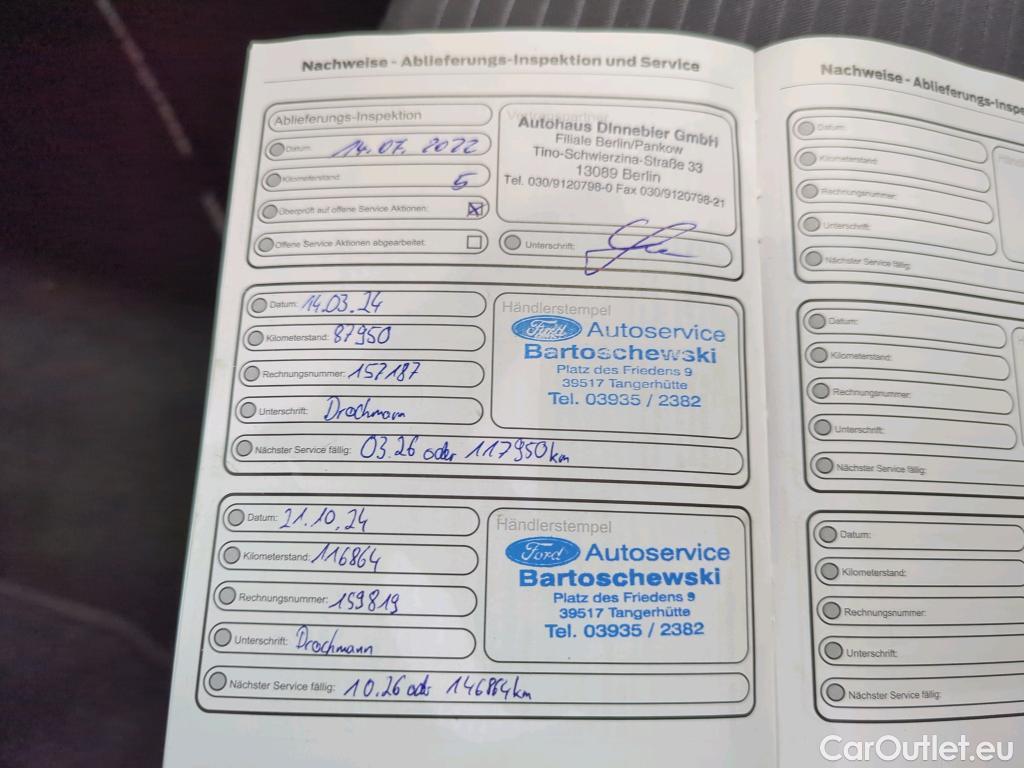 Nachweise - Ablieferungs-Inspektion und Service
Ablieferungs-Inspektion
Datum: 14.07. 2022
Kilometerstand: 5
Überprüft auf offene Service Aktionen:
Offene Service Aktionen abgearbeitet:
Autohaus Dinnebier GmbH
Filiale Berlin/Pankow
Tino-Schwierzina-Straße 33
13089 Berlin
Tel. 030/9120798-0 Fax 030/9120798-21
Unterschrift:
Datum: 14.03.24
Kilometerstand: 87950
Rechnungsnummer: 157187
Unterschrift: Drachmann
Nächster Service fällig: 03.26 oder 117950km
Händlerstempel
Ford Autoservice
Bartoschewski
Platz des Friedens 9
39517 Tangerhütte
Tel. 03935 / 2382
Datum: 21.10.24
Kilometerstand: 116864
Rechnungsnummer: 159819
Unterschrift: Drachmann
Nächster Service fällig: 10.26 oder 146864km
Händlerstempel
Ford Autoservice
Bartoschewski
Platz des Friedens 9
39517 Tangerhütte
Tel. 03935 / 2382
Nachweise - Ablieferungs-Inspe
Datum:
Kilometerstand:
Rechnungsnummer:
Unterschrift:
Nächster Service fällig:
Datum:
Kilometerstand:
Rechnungsnummer:
Unterschrift:
Nächster Service fällig:
Datum:
Kilometerstand:
Rechnungsnummer:
Unterschrift:
Nächster Service fällig:
CarOutlet.eu